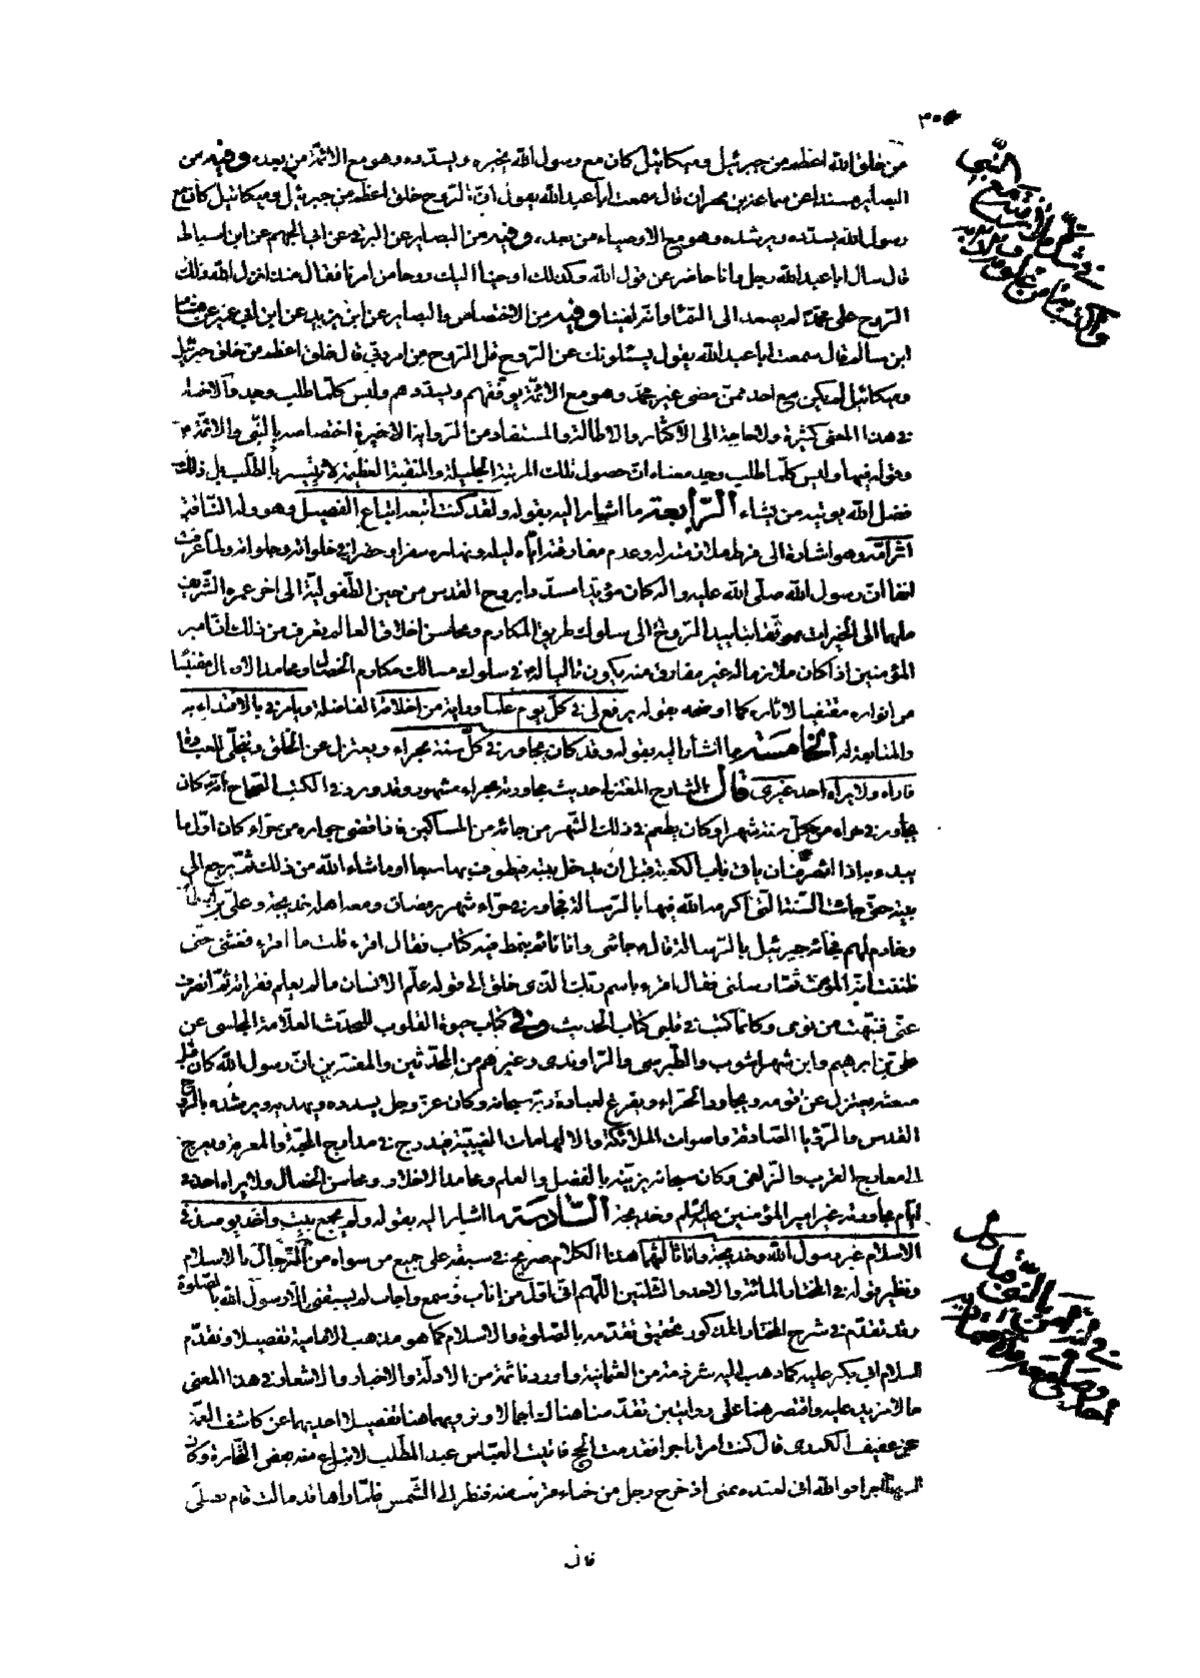 من خلق الله اعظم من جبرئيل وميكائيل كان مع رسول الله يخبره ويسدّده وهو مع الائمّة من بعده وفيه من
البصاير مسندا عن سماعة بن مهران قال سمعت ابا عبد الله يقول انّ الرّوح خلق اعظم من جبرئيل وميكائيل كان مع
رسول الله يسدّده ويرشده وهو مع الاوصياء من بعده وفيه من البصاير عن البرقي عن ابي الجهم عن ابن اسباط
قال سال ابا عبد الله رجل وانا حاضر عن قول الله وكذلك اوحينا اليك روحا من امرنا فقال منذ انزل الله ذلك
الرّوح على محمّد لم يصعد الى السّماء وانّه لفينا وفيه من الاختصاص والبصاير عن ابن يزيد عن ابن ابي عمير عن هشام
ابن سالم قال سمعت ابا عبد الله يقول يسئلونك عن الرّوح قل الرّوح من امر ربّي قال خلق اعظم من خلق جبرئيل
وميكائيل لم يكن مع احد ممّن مضى غير محمّد وهو مع الائمّة يوفّقهم ويسدّدهم وليس كلّما طلب وجد والاخبار
في هذا المعنى كثيرة ولا حاجة الى الاكثار والاطالة والمستفاد من الرّواية الاخيرة اختصاصه بالنّبي والائمّة
وقوله فيها وليس كلّما طلب وجد معناه انّ حصول تلك المرتبة الجليلة والمنقبة العظيمة لا يتيسر بالطّلب بل ذلك
فضل الله يوتيه من يشاء الرّابعة ما اشار اليه بقوله ولقد كنت اتّبعه اتباع الفصيل وهو ولد النّاقة
اثر امّه وهو اشارة الى فرط ملازمته له وعدم مفارقته ايّاه ليله ونهاره سفرا وحضرا في خلواته وجلواته ولمّا عرفت
انفا انّ رسول الله صلّى الله عليه واله كان مؤيّدا مسدّدا بروح القدس من حين الطّفوليّة الى اخر عمره الشّريف
ملهما الى الخيرات موفّقا بتاييد الرّوح الى سلوك طريق المكارم ومحاسن اخلاق العالم يعرف من ذلك انّ امير
المؤمنين اذا كان ملازما له غير مفارق منه يكون تاليا له في سلوك مسالك مكارم الخصال ومحامد الافعال مقتبسا
من انواره مقتفيا لاثاره كما اوضحه بقوله يرفع لي في كلّ يوم علما وراية من اخلاقه الفاضلة ويامرني بالاقتداء به
والمتابعة له الخامسة ما اشار اليه بقوله وقد كان يجاور في كلّ سنة بحراء ويعتزل عن الخلق ويتخلّى للعبادة
فاراه ولا يراه احد غيري قال الشارح المعتزلي حديث مجاورته بحراء مشهور وقد ورد في الكتب الصّحاح انّه كان
يجاور في حراء من كلّ سنة شهرا وكان يطعم في ذلك الشّهر من جائه من المساكين فاذا قضى جواره من حراء كان اوّل ما
يبدء به اذا انصرف ان ياتي باب الكعبة قبل ان يدخل بيته فيطوف بها سبعا او ما شاء الله من ذلك ثمّ يرجع الى
بيته حتّى جائت السّنة الّتي اكرمه الله فيها بالرّسالة فجاور في حراء شهر رمضان ومعه اهله خديجة وعليّ بن ابيطالب
وخادم لهم فجائه جبرئيل بالرّسالة قال جائني وانا نائم بنمط فيه كتاب فقال اقرء قلت ما اقرء فغتّني حتّى
ظننت انّه الموت ثمّ ارسلني فقال اقرء باسم ربّك الّذي خلق الى قوله علّم الانسان ما لم يعلم فقراته ثمّ انصرف
عنّي فنبهت من نومي وكانّما كتب في قلبي كتاب الحديث وفي كتاب حيوة القلوب للمحدّث العلامة المجلسي عن
عليّ بن ابرهيم وابن شهراشوب والطّبرسي والرّاوندي وغيرهم من المحدّثين والمفسّرين انّ رسول الله كان قبل
مبعثه يعتزل عن قومه ويجاور الحراء ويفرغ لعبادة ربّه سبحانه وكان عزّ وجل يسدده ويهديه ويرشده بالرّوح
القدس والرّؤيا الصّادقة واصوات الملائكة والالهامات الغيبيّة فيدرج في مدارج المحبّة والمعرفة ويعرج
الى معارج القرب والزلفى وكان سبحانه يزيّنه بالفضل والعلم ومحامد الاخلاق ومحاسن الخصال ولا يراه احد في
ايّام مجاورته غير امير المؤمنين عليه السّلم وخديجة السّادسة ما اشار اليه بقوله ولم يجمع بيت واحد يومئذ في
الاسلام غير رسول الله وخديجة وانا ثالثهما هذا الكلام صريح في سبقه على جميع من سواه من الرّجال بالاسلام
ونظيره قوله في المختار المائة والاحد والثلثين اللّهم انّي اوّل من اناب وسمع واجاب لم يسبقني الّا رسول الله بالصّلوة
وقد تقدّم في شرح المختار المذكور تحقيق تقدّمه بالصّلوة والاسلام كما هو مذهب الاماميّة تفصيلا وتقدّم
اسلام ابي بكر عليه كما ذهب اليه شرذمة من العثمانيّة واوردنا ثمّة من الادلّة والاخبار والاشعار في هذا المعنى
ما لا مزيد عليه واقتصر هنا على روايتين تقدّمتا هناك اجمالا ونرويهما هنا تفصيلا احديهما عن كاشف الغمّة
عن عفيف الكندي قال كنت امرءا تاجرا فقدمت الحج فاتيت العبّاس عبد المطّلب لابتاع منه بعض التّجارة وكان
امرءا تاجرا فوالله انّي لعنده بمنى اذ خرج رجل من خباء قريب منه فنظر الى الشّمس فلمّا راها قد مالت قام يصلّي
قال